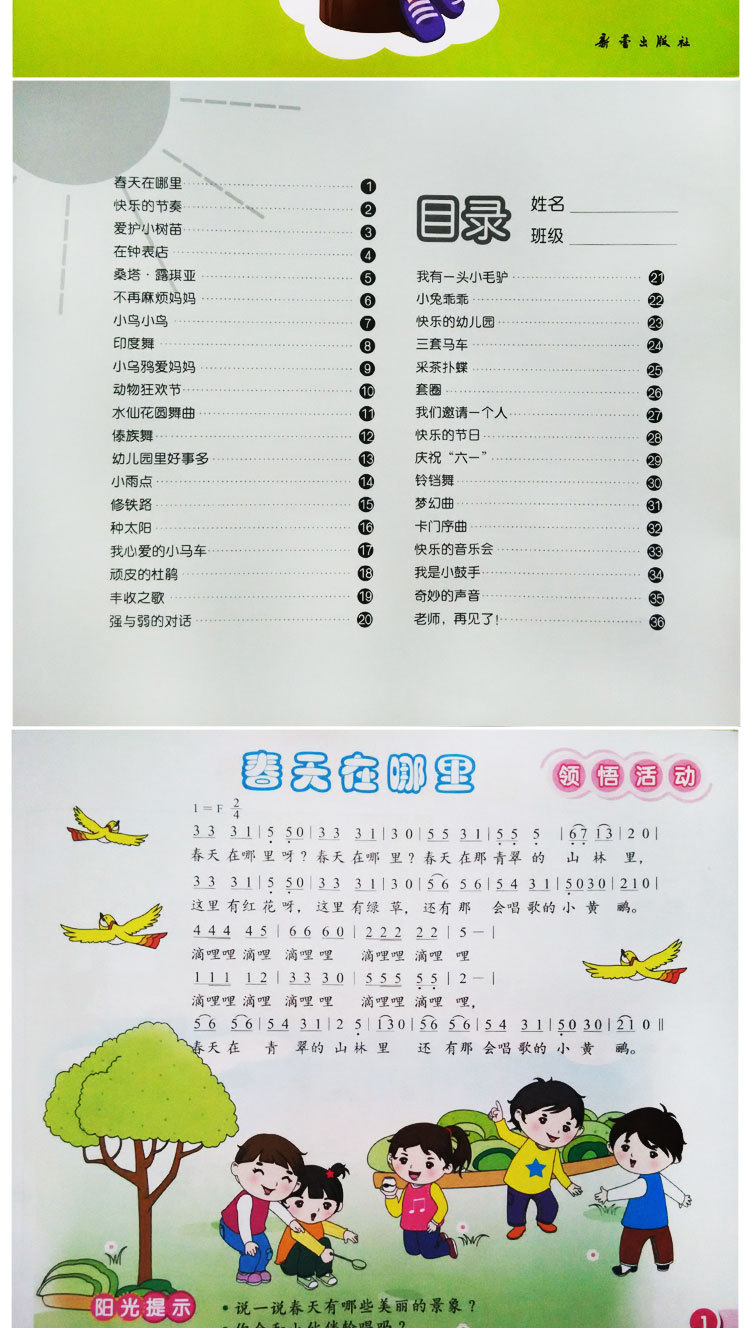 新蕾出版社
春天在哪里 1
快乐的节奏 2
爱护小树苗 3
在钟表店 4
桑塔·露琪亚 5
不再麻烦妈妈 6
小鸟小鸟 7
印度舞 8
小乌鸦爱妈妈 9
动物狂欢节 10
水仙花圆舞曲 11
傣族舞 12
幼儿园里好事多 13
小雨点 14
修铁路 15
种太阳 16
我心爱的小马车 17
顽皮的杜鹃 18
丰收之歌 19
强与弱的对话 20
目录
姓名
班级
我有一头小毛驴 21
小兔乖乖 22
快乐的幼儿园 23
三套马车 24
采茶扑蝶 25
套圈 26
我们邀请一个人 27
快乐的节日 28
庆祝“六一” 29
铃铛舞 30
梦幻曲 31
卡门序曲 32
快乐的音乐会 33
我是小鼓手 34
奇妙的声音 35
老师，再见了! 36
春天在哪里
领悟活动
1=F 2/4
3 3 3 1 | 5 5 0 | 3 3 3 1 | 3 0 | 5 5 3 1 | 5 5 5 | 6 7 1 3 | 2 0 |
春天在哪里呀？春天在哪里？春天在那青翠的山林里，
3 3 3 1 | 5 5 0 | 3 3 3 1 | 3 0 | 5 6 5 6 | 5 4 3 1 | 5 0 3 0 | 2 1 0 |
这里有红花呀，这里有绿草，还有那会唱歌的小黄鹂。
4 4 4 4 5 | 6 6 6 0 | 2 2 2 2 2 | 5 - |
滴哩哩滴哩 滴哩哩 滴哩哩滴哩 哩
1 1 1 1 2 | 3 3 3 0 | 5 5 5 5 5 | 2 - |
滴哩哩滴哩 滴哩哩 滴哩哩滴哩 哩，
5 6 5 6 | 5 4 3 1 | 2 5 | 1 3 0 | 5 6 5 6 | 5 4 3 1 | 5 0 3 0 | 2 1 0 ‖
春天在青翠的山林里 还有那会唱歌的小黄鹂。
阳光提示
·说一说春天有哪些美丽的景象？
·你会和小伙伴轮唱吗？
1